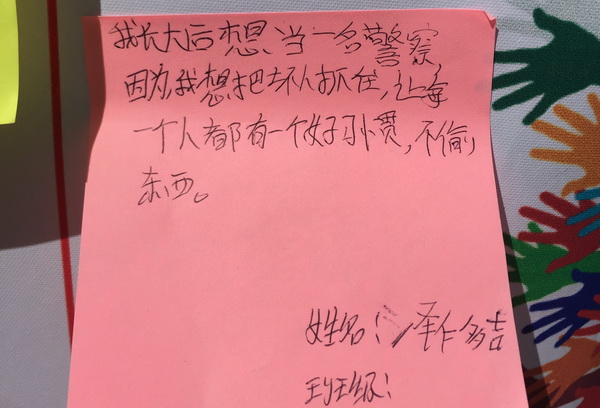 我长大后想当一名警察,
因为我想把坏人抓住,让每
一个人都有一个好习惯,不偷
东西。
姓名:泽仁多吉
班级: